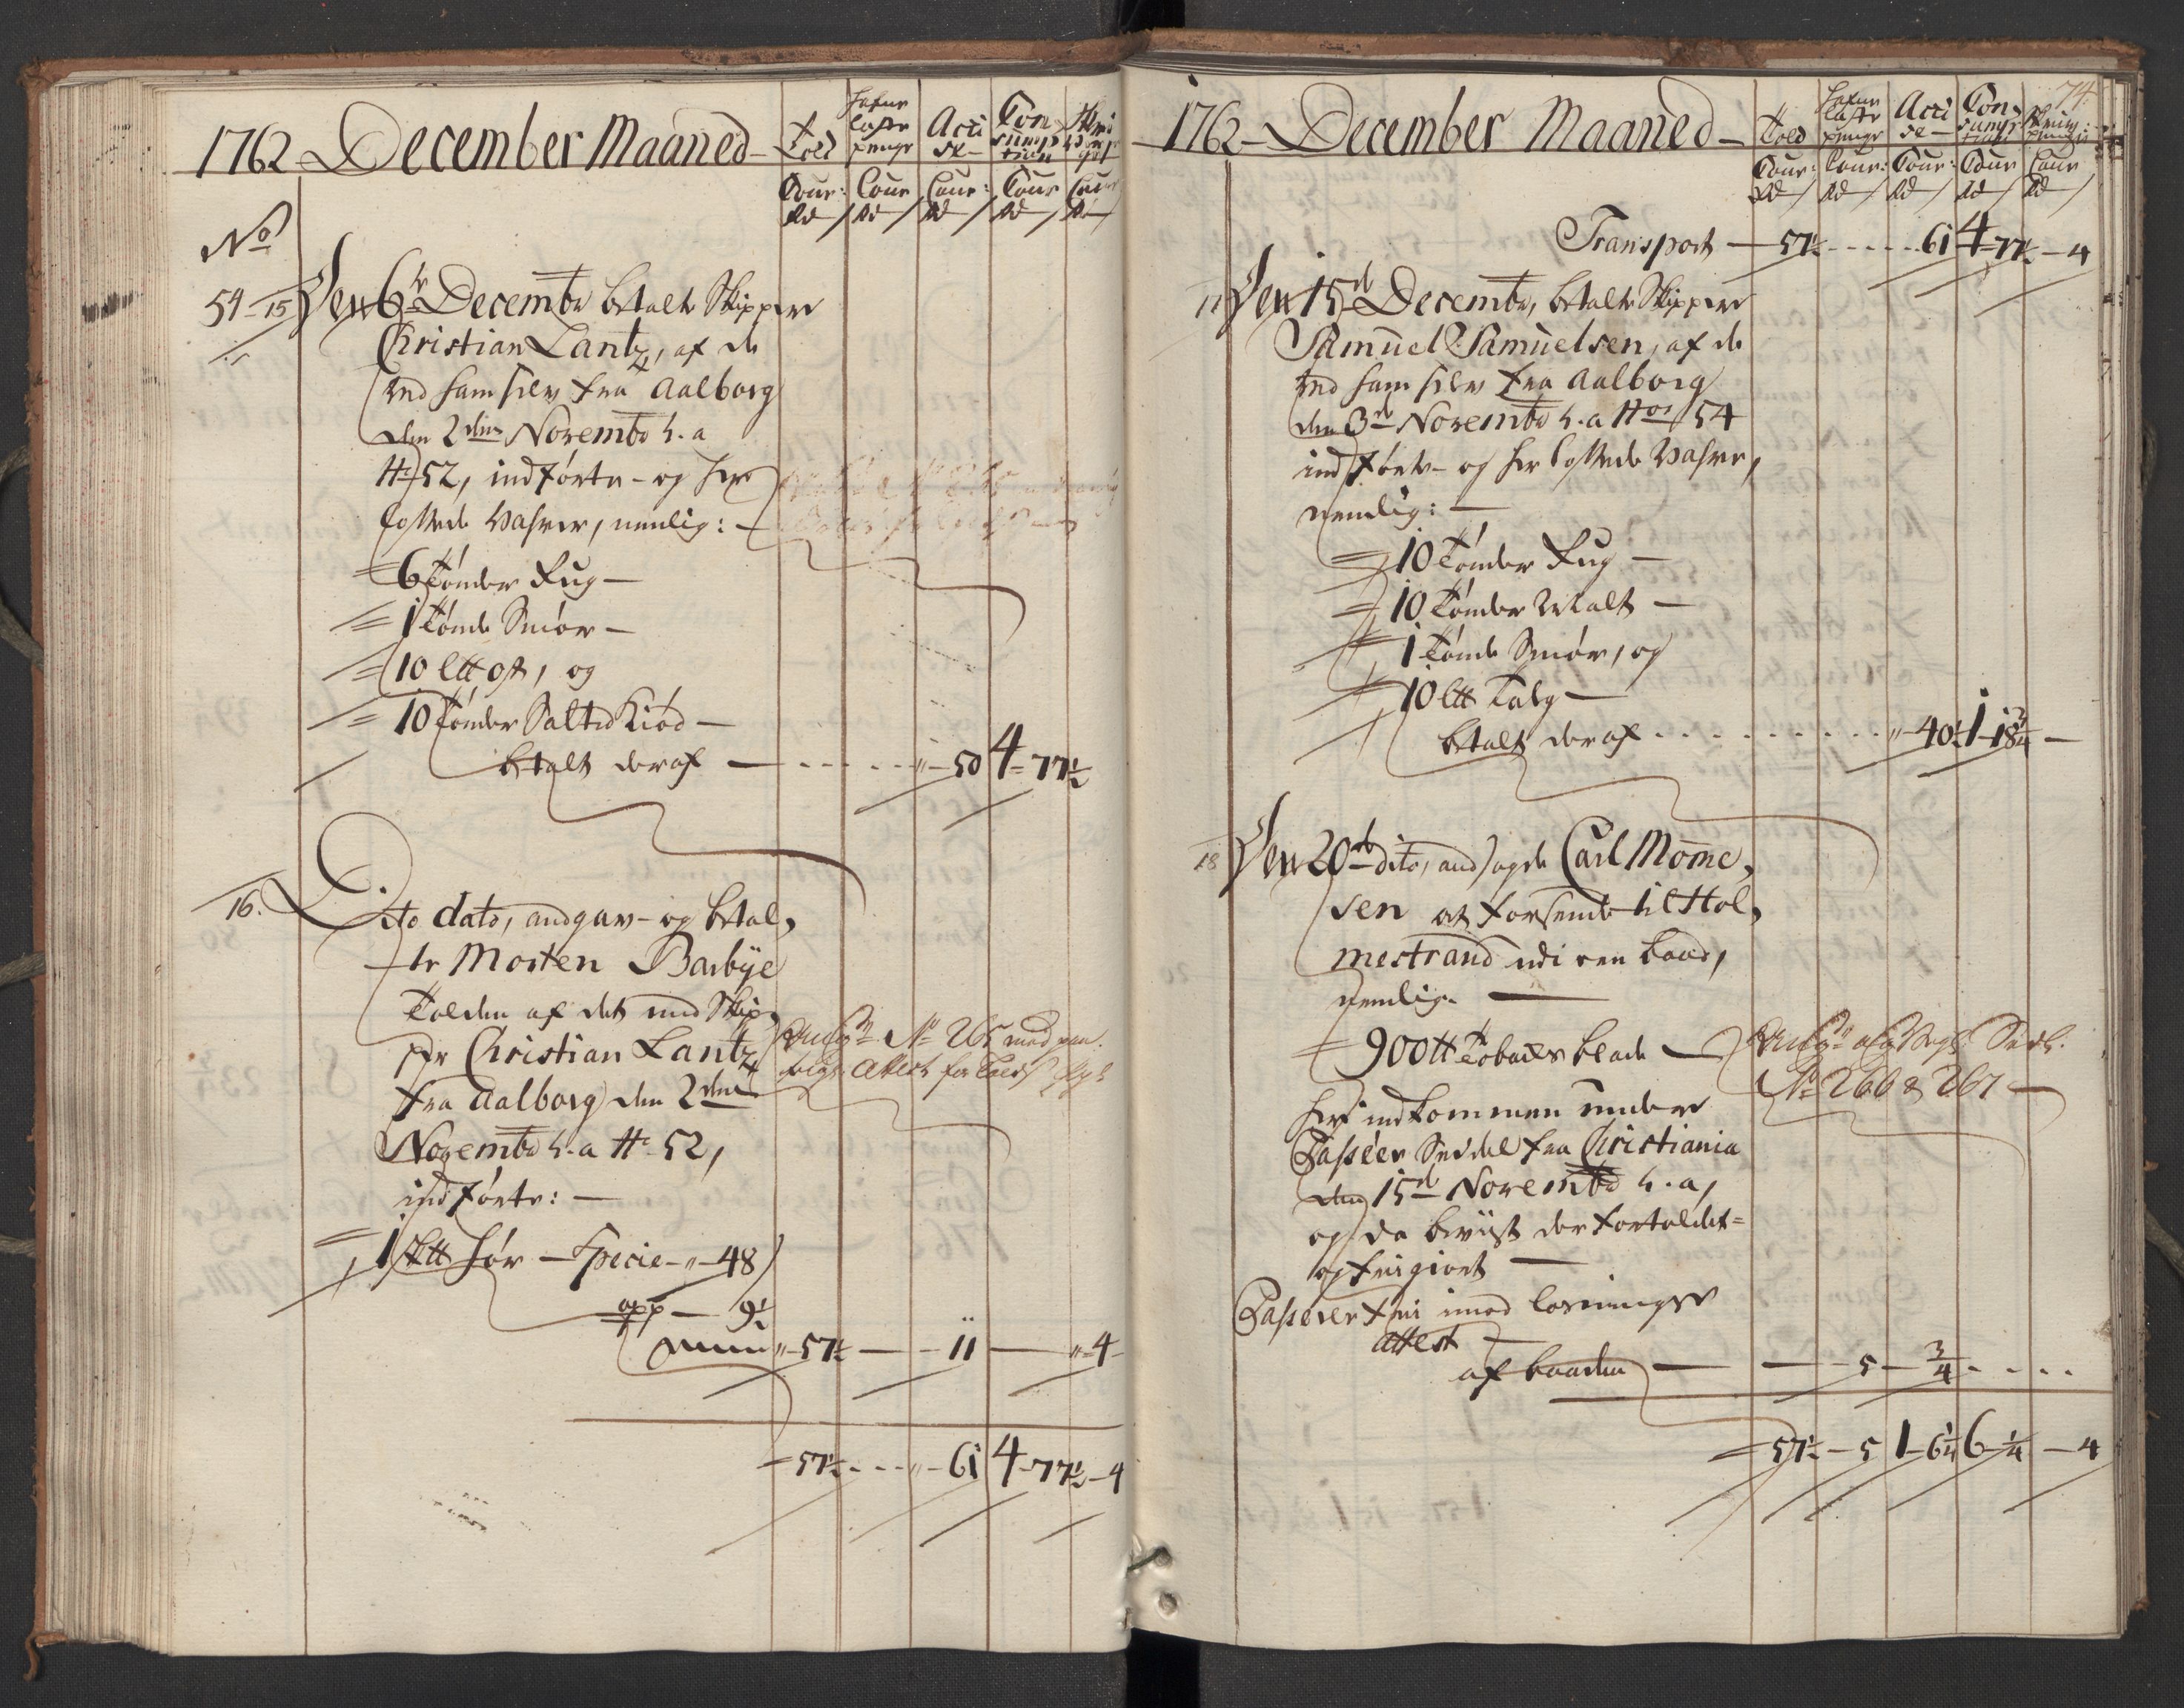 1762 December Maaned
Told
Hafne
Laste
penge
Acci
se
Con
sump
tion
Cour: Cour Cour: Cour Cour
Rd / Rd / Rd / Rd / Rd
No
54-15 Den 6te Decembr betalte Skipper
Christian Lantz, af de
med ham selv fra Aalborg
den 2den Novembr h. a
No 52, indførte- og her
lossede Vahrer, nemlig:
6 Tønder Rug
1 Tønde Smør
10 L℔ Ost, og
10 Tønder Saltet Kiød
betalt deraf " 50 4 - 77½
16. Dito dato, angav- og betal-
te Morten Barbye
Tolden af det med Skip-
per Christian Lantz
fra Aalborg den 2den
Novembr h. a No 52,
indførte:
No 265 med paa-
Attest for
1 Sk℔ Hør - Specie " 48
opp 9½
" 57½ - 11 - " 4
57½ " 61 4 - 77½ - 4
1762 December Maaned
74
Told
Hafne
Laste
penge
Acci
se
Con
sump
tion
Cour: Cour: Cour: Cour Cour
Rd / Rd / Rd / Rd / Rd
Transport 57½ 61 4 - 77½ - 4
Den 15de Decembr, betalte Skipper
Samuel Samuelsen, af de
med ham selv fra Aalborg
den 3de Novembr h. a No 54
indførte- og her lossede Vahrer,
nemlig:
10 Tønder Rug
10 Tønder Malt
1 Tønde Smør, og
10 L℔ Talg
betalt deraf " 40½ 1 - 18¾
18 Den 20de dito, andsagde Carl Mom̄e-
sen at forsende til Hol-
mestrand udi een Baad,
nemlig
900 ℔ Tobacks blade
No 266 & 267
her indkommen under
Passeer Seddel fra Christiania
den 15de Novembr h. a,
og da beviist der fortoldet-
og frigivet
Passerer frie imod losnings
Attest
af baaden 5 - ¾
57½ - 5 1 - 6¼ 6 - ¼ - 4